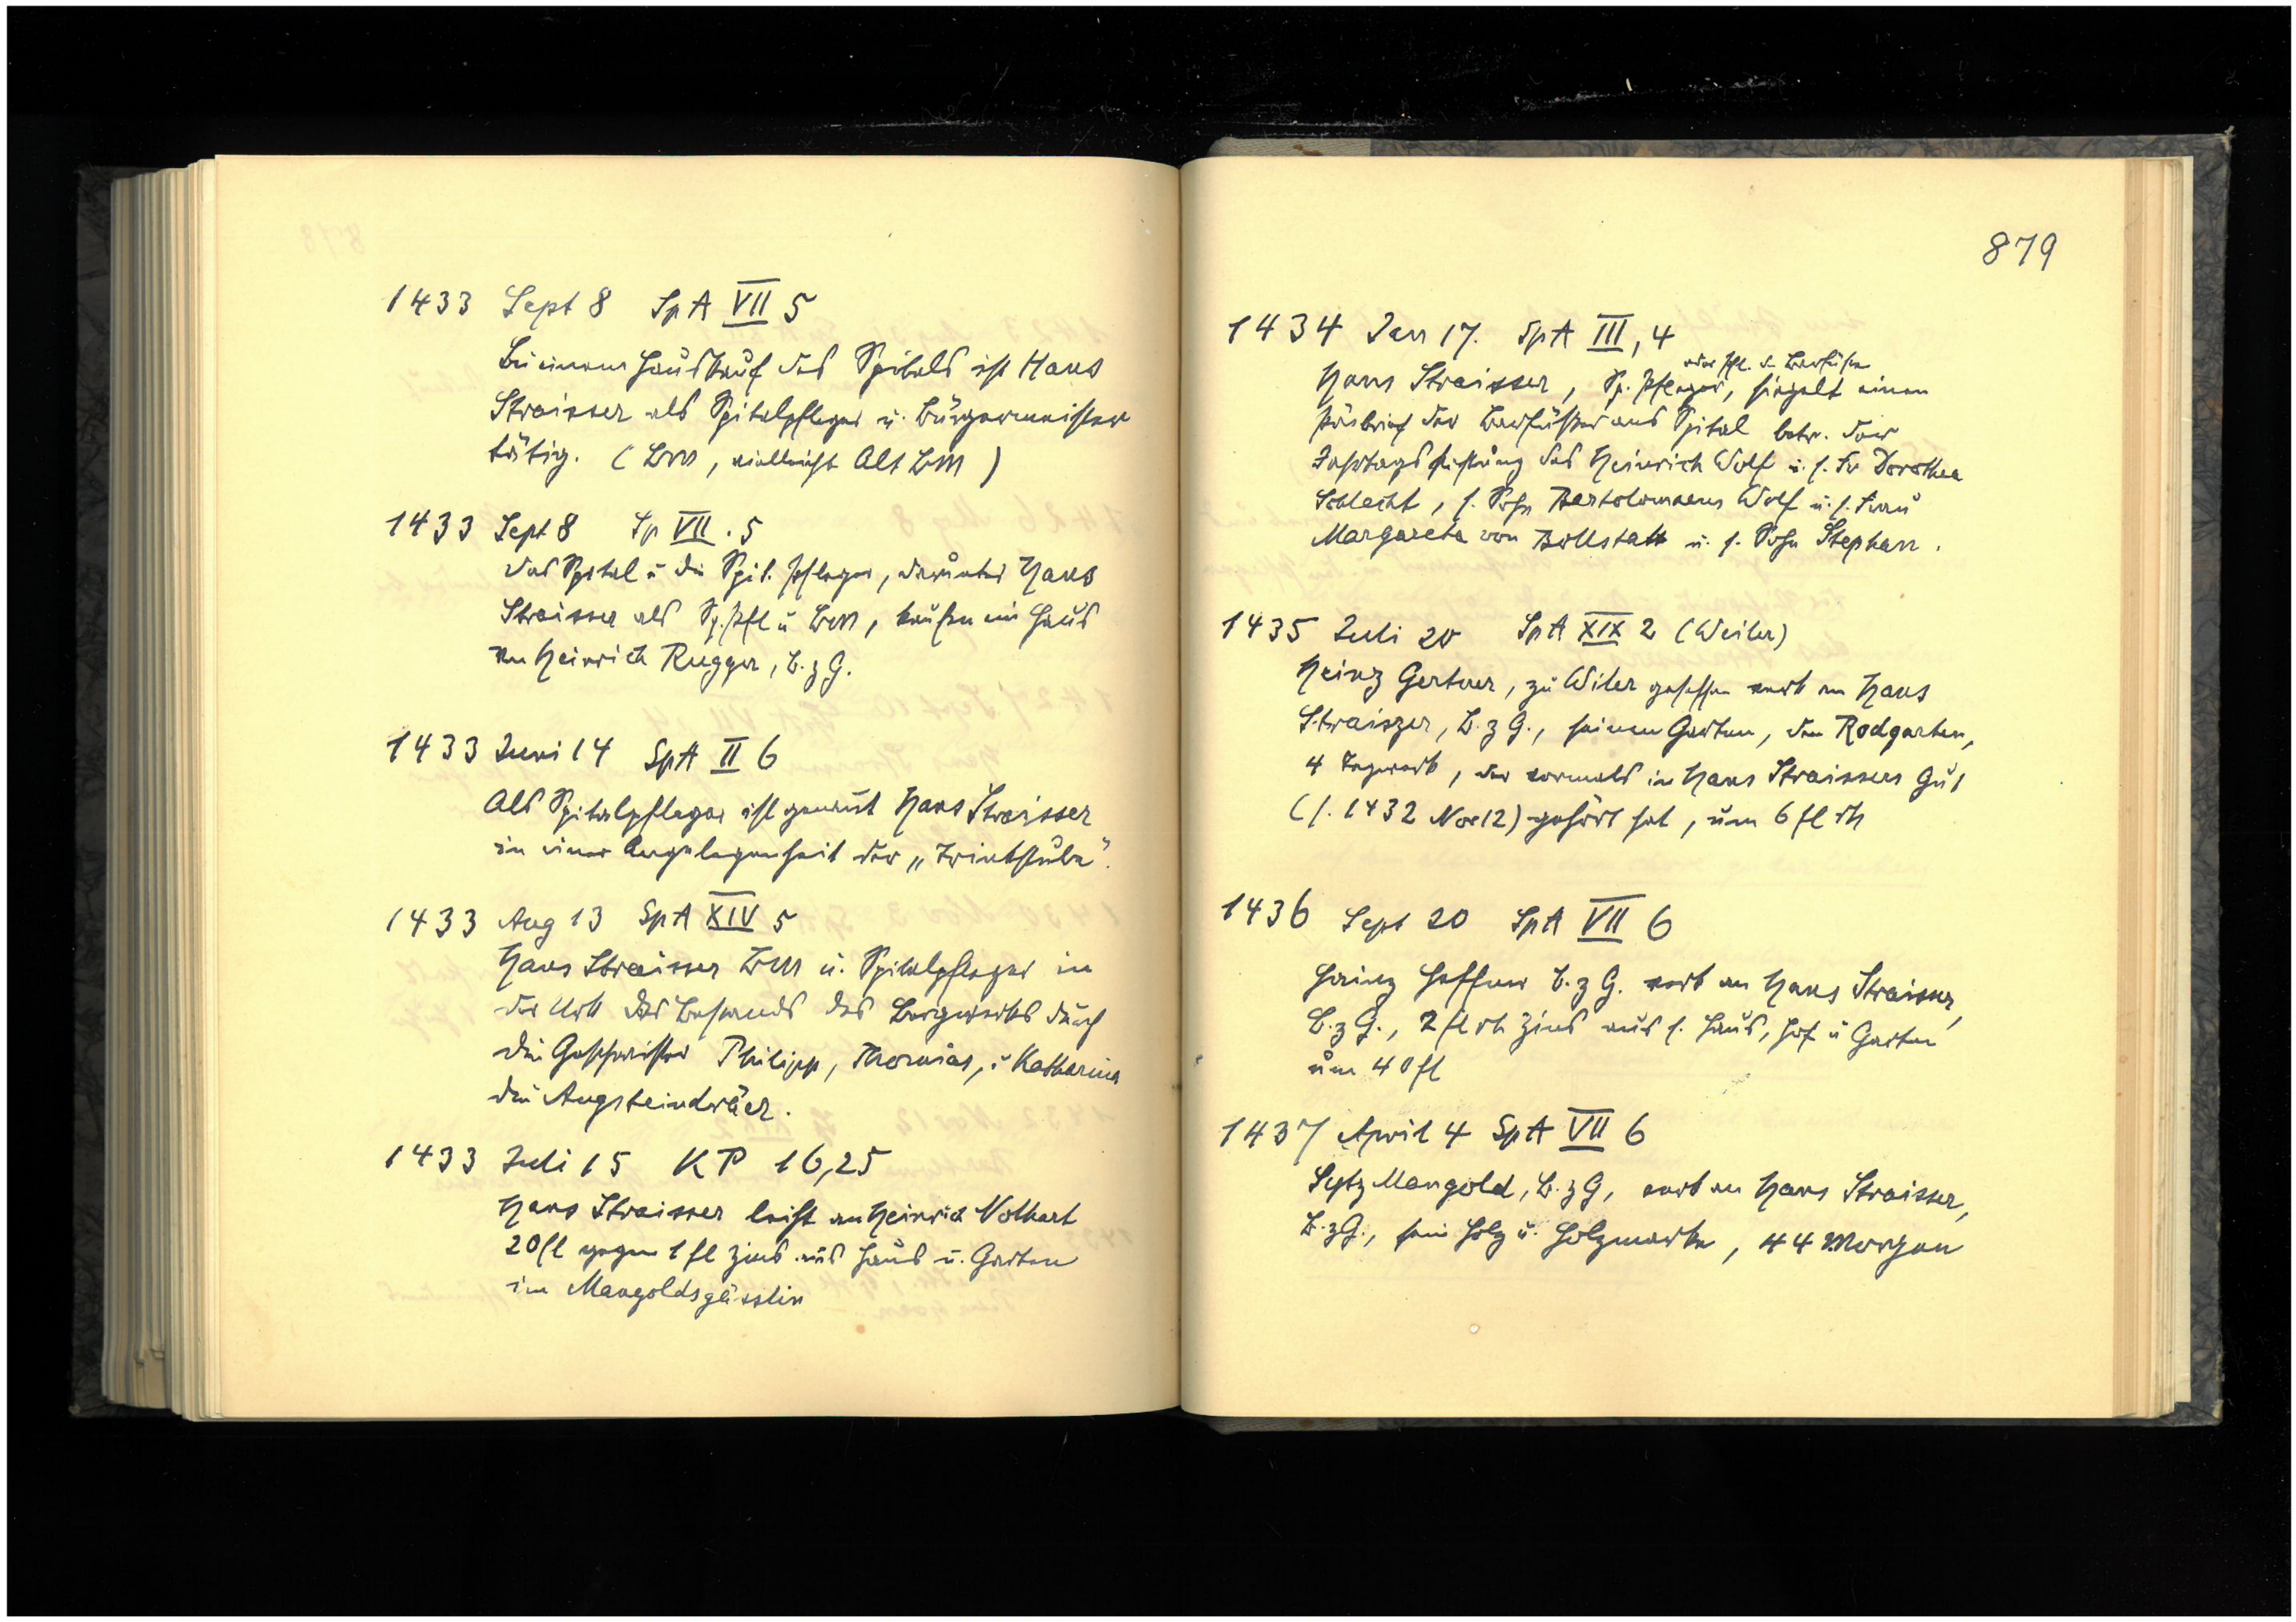 1433 Sept 8 SpA VII 5
Bei einem Hauskauf des Spitals ist Hans
Straisser als Spitalpfleger u. Bürgermeister
tätig. (BM, vielleicht Alt BM)
1433 Sept 8 Sp VII. 5
Das Spital u die Spit. Pfleger, darunter Hans
Straisser als Sp. Pfl u BM, kaufen ein Haus
von Heinrich Rugger, B. z G.
1433 Juni 14 SpA II 6
Als Spitalpfleger ist genannt Hans Straisser
in einer Angelegenheit der „Trinkstube".
1433 Aug 13 SpA XIV 5
Hans Straisser BM u. Spitalpfleger in
der Urk des Bestands des Bergwerks durch
die Geschwister Philipp, Thomas, u Katharina
die Augsteindräer.
1433 Juli 15 KP 16,25
Hans Straisser leiht an Heinrich Nothart
20 fl gegen 1 fl Zins aus Haus u. Garten
im Mangoldsgässlin
879
1434 Jan 17. SpA III, 4
oder Pfl. d. Barfüßer
Hans Straisser, Sp. Pfleger, siegelt einen
der Barfüßer ans Spital betr. der
Jahrtagsstiftung des Heinrich Wolf u. s. Fr Dorothea
Schlecht, s. Sohn Bartolomaeus Wolf u. s. Frau
Margareta von Bollstatt u. s. Sohn Stephan.
1435 Juli 20 SpA XIX 2 (Weiler)
Heinz Gertner, zu Wiler gesessen verk an Hans
Straiszer, B. z G., seinen Garten, den Rodgarten,
4 Tagwerk, der vormals in Hans Straissers Gut
(s. 1432 Nov 12) gehört hat, um 6 fl rh
1436 Sept 20 SpA VII 6
Hainz B. z G. verk an Hans Straisser,
B. z G., 2 fl rh Zins aus s. Haus, Hof u Garten
um 40 fl
1437 April 4 SpA VII 6
Seytz Mangold, B. z G, verk an Hans Straisser,
B. z G., sein Holz u. Holzmarke, 44 Morgen